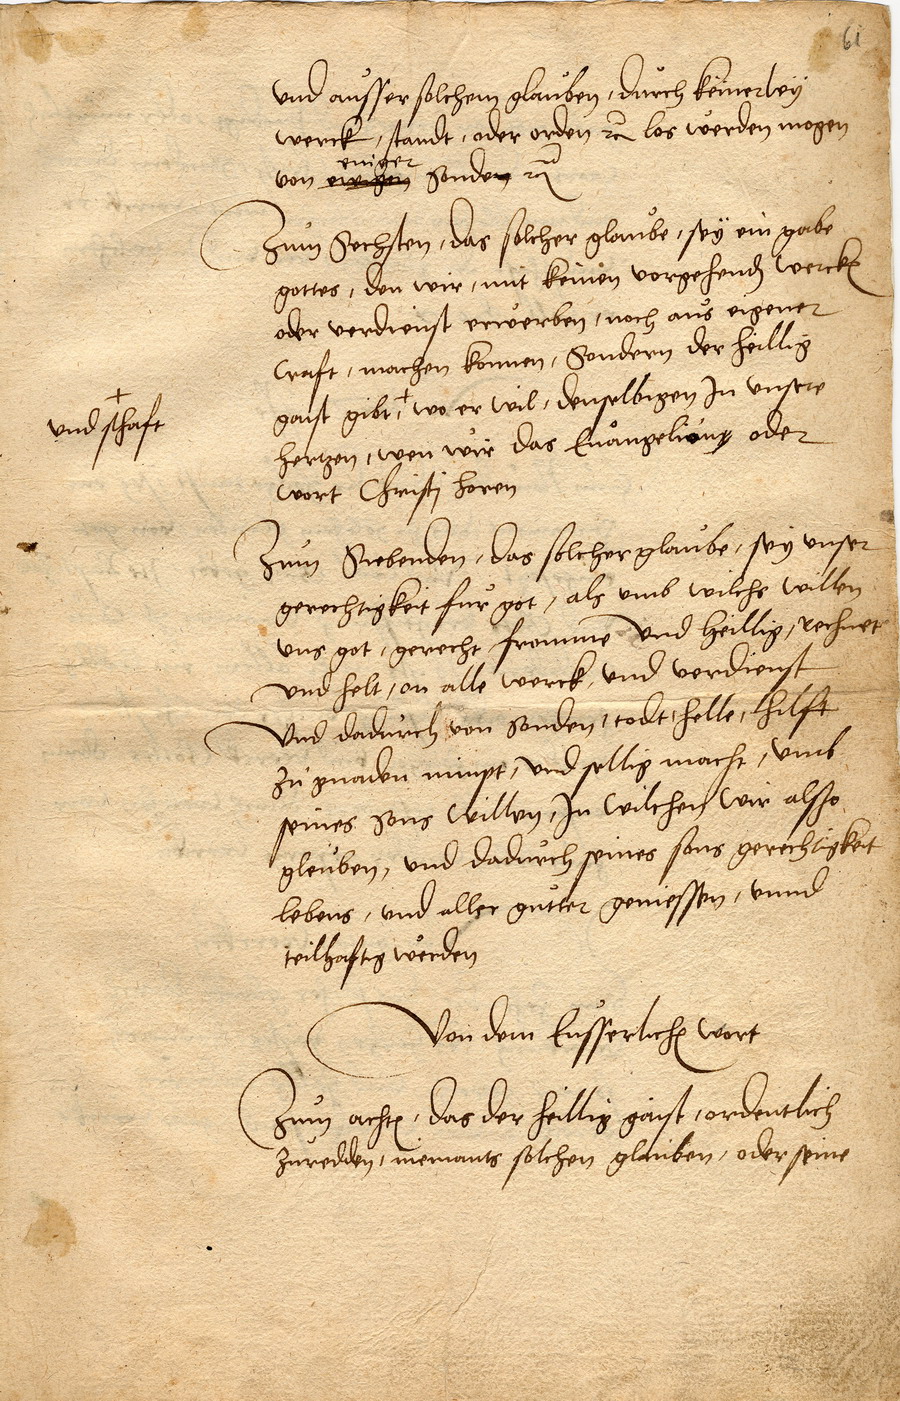 61
und ausser solchem glauben, durch keinerley
werck, standt, oder orden ꝛc los werden mogen
einiger
von ewigen sonden ꝛc
Zum Sechsten, das solcher glaube, sey ein gabe
gottes, den wir, mit keinen vorgehend wercken
oder verdienst erwerben, noch aus eigener
craft, machen konnen, Sondern der heillig
+
und schaft
gaist gibt,+ wo er wil, denselbigen In unsere
hertzen, wen wir das Euangelium oder
wort Christi horen
Zum Siebenden, das solcher glaube, sey unser
gerechtigkeit fur got, als umb wilchs willen
uns got, gerecht fromme und heillig, rechnet
und helt, on alle werck, und verdienst
Und dadurch von sonden, todt, helle, hilft
zu gnaden nimpt, und sellig macht, umb
seines sons willen, In wilchen wir also
gleuben, und dadurch seines sons gerechtigkeit
lebens, und aller gutter geniessen, unnd
teilhaftig werden
Von dem Eusserlichen wort
Zum achten, das der heillig gaist, ordentlich
zuredden, niemants solchen glauben, oder seine